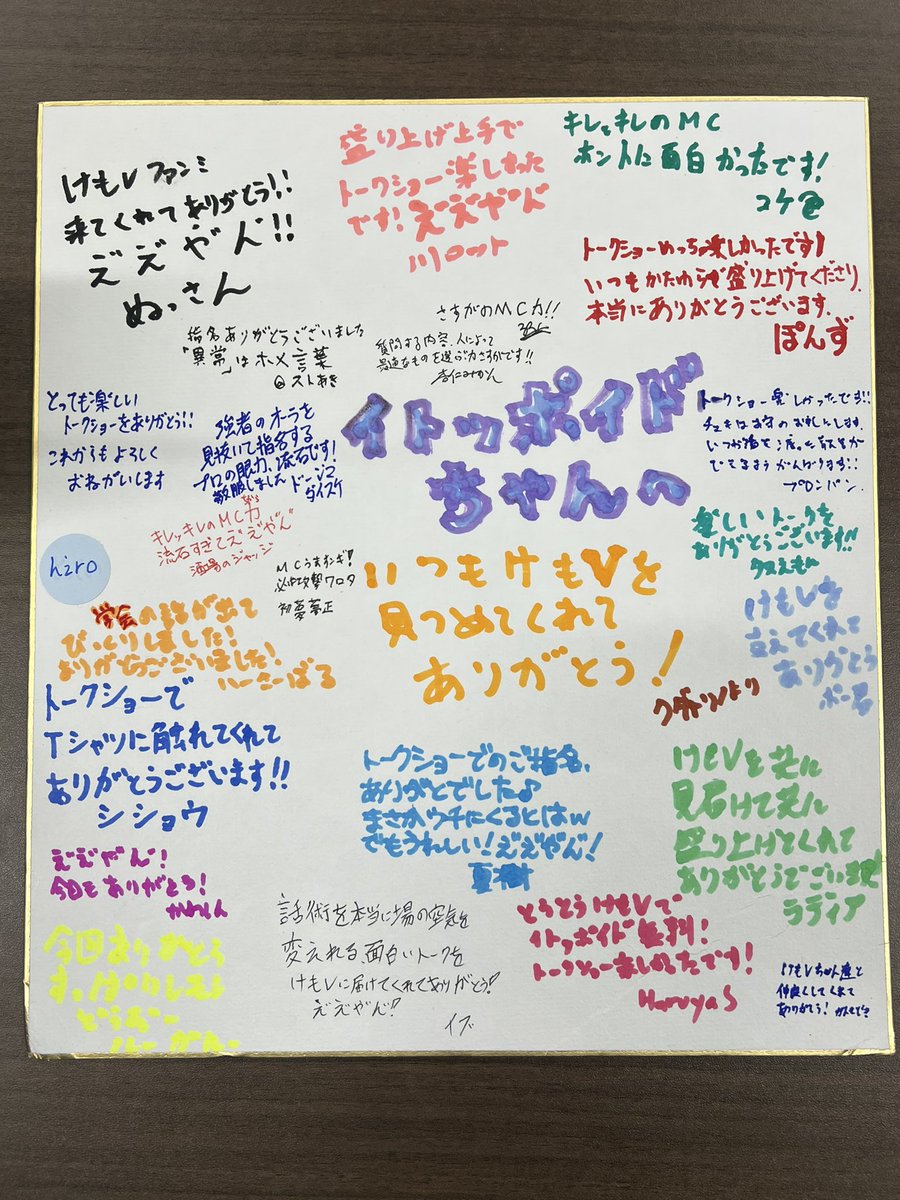 けもVファンミ
来てくれてありがとう!!
ええやん!!
ぬっさん
盛り上げ上手で
トークショー楽しむた
です! ええやん
川ロット
キレッキレのMC
ホントに面白かったです!
コケ
トークショーめっちゃ楽しかったです!
いつもかたわらで盛り上げてくださり、
本当にありがとうございます。
ぽんず
指名ありがとうございました
「異常」はホメ言葉
@ストあき
さすがのMC力!!
質問する内容、人によって
最適なものを選ぶ力さすがです!!
杏仁みかん
イトッポイド
ちゃんへ
とっても楽しい
トークショーをありがとう!!
これからもよろしく
おねがいします
hiro
強者のオーラを
見抜いて指名する
プロの眼力、流石です!
敬服しました
ドーシュ
ダイスケ
トークショー楽しかったです!!
いつか酒を
がんばります!!
プロンバン
キレッキレのMC力
流石すぎてええやん
酒場のジャッジ
MCうますぎ!
必中攻撃ワロタ
初夢夢正
楽しいトークを
ありがとうございます!!
いつもけもVを
見つめてくれて
ありがとう!
けもVを
支えてくれて
ありがとう
ボー君
学会の話が出て
びっくりしました!
ありがとうございました!
ハーニーばる
より
トークショーで
Tシャツに触れてくれて
ありがとうございます!!
シショウ
トークショーでのご指名、
ありがとでした♪
まさかウチにくるとはw
でもうれしい! ええやん!
夏樹
けもVを共に
見届けて共に
盛り上げてくれて
ありがとうでございます!
ラディア
ええやん!
今日もありがとう!
今回ありがとう
話術を本当に場の空気を
変えれる面白いトークを
けもVに届けてくれてありがとう!
ええやん!
イブ
とうとうけもVで
イトッポイド無料!
トークショー楽しかったです!
HaruyaS
けもVちゃん達と
仲良くしてくれて
ありがとう!